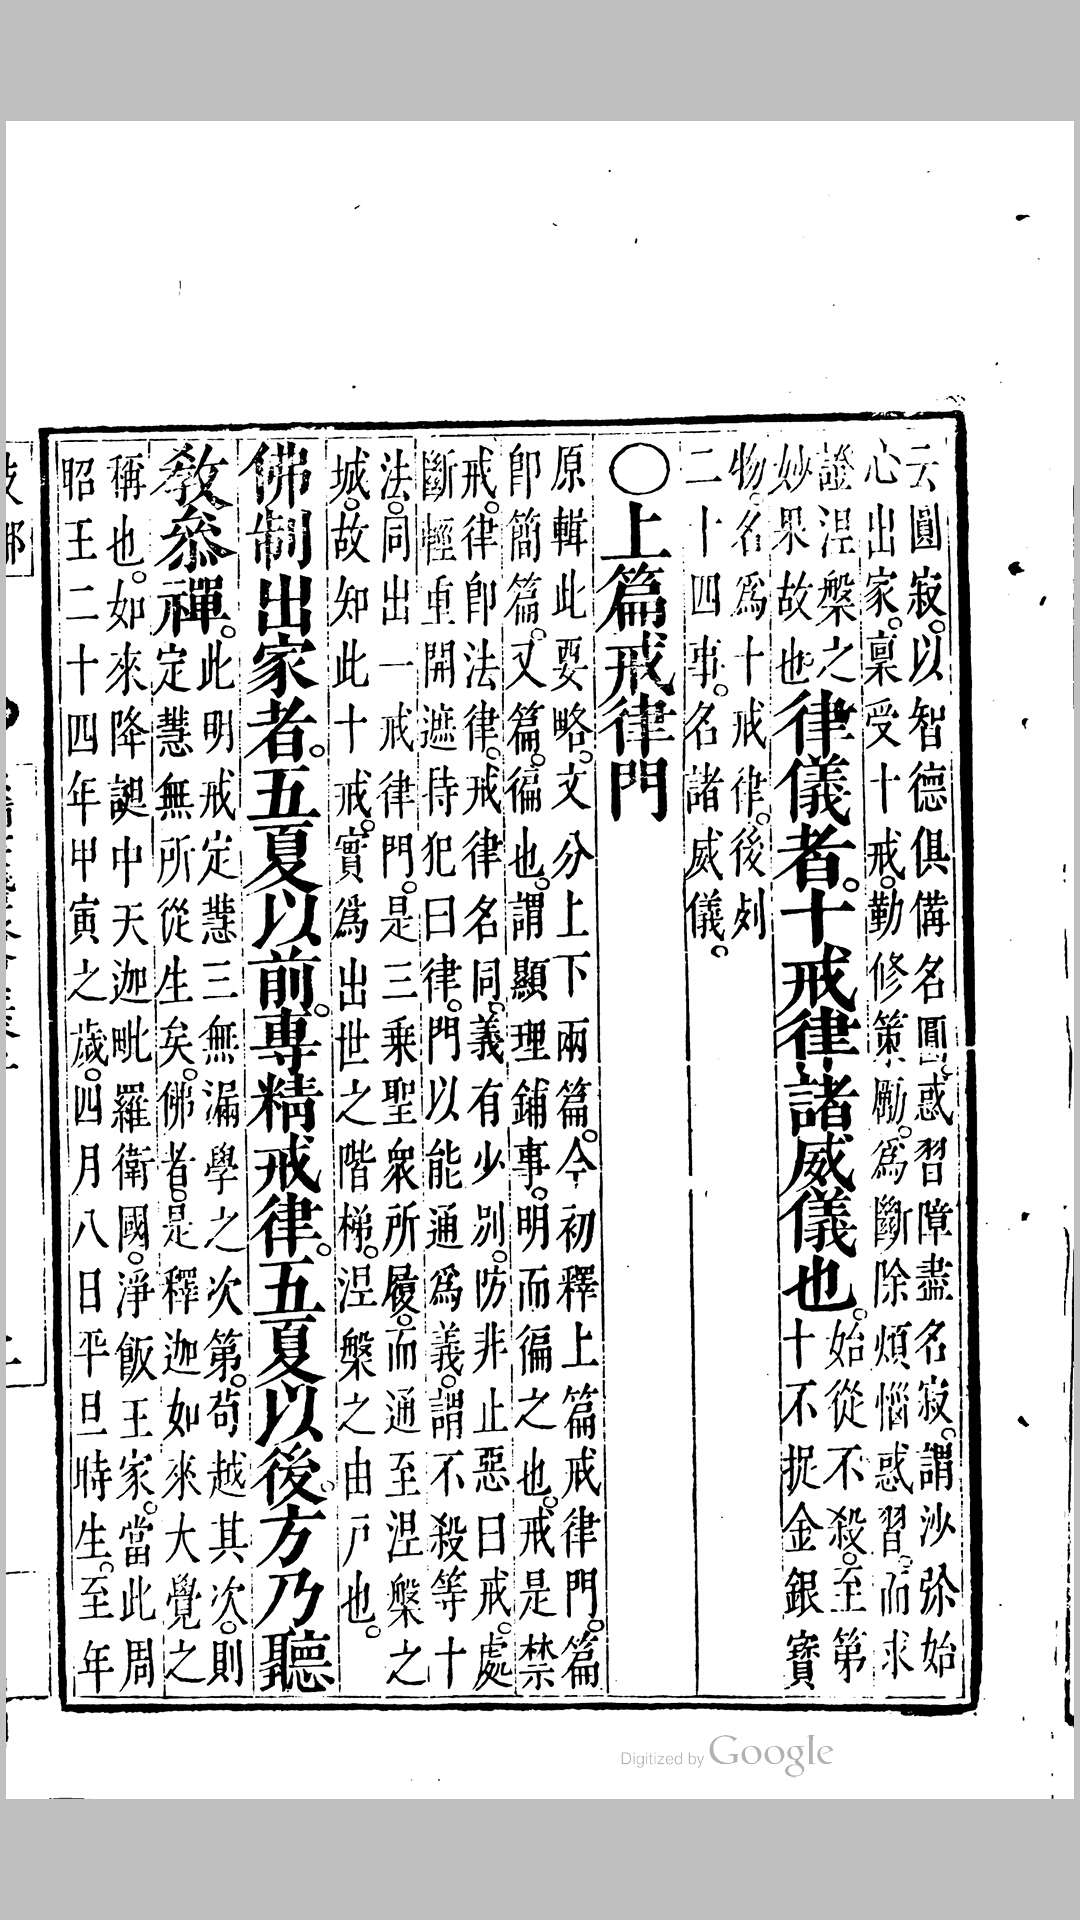 云圓寂。以智德俱備名圓。惑習障盡名寂。謂沙弥始
心出家。稟受十戒。勤修策勵。為斷除煩惱惑習。而求
證涅槃之
妙果故也
律儀者。十戒律諸威儀也。
始從不殺。至第
十不捉金銀寳
物。名爲十戒律。後列
二十四事。名諸威儀。
○上篇戒律門
原輯此要略。文分上下兩篇。今初釋上篇戒律門。篇
卽簡篇。又篇。徧也。謂顯理鋪事。明而徧之也。戒是禁
戒。律卽法律。戒律名同。義有少別。防非止惡曰戒。處
斷輕重開遮持犯曰律。門以能通爲義。謂不殺等十
法。同出一戒律門。是三乗聖衆所履。而通至涅槃之
城。故知此十戒。實爲出世之階梯。涅槃之由户也。
佛制出家者。五夏以前。專精戒律。五夏以後。方乃聽
教叅禪。
此明戒定慧三無漏學之次第。苟越其次。則
定慧無所從生矣。佛者。是釋迦如來大覺之
稱也。如來降誕中天迦毗羅衛國。淨飯王家。當此周
昭王二十四年甲寅之歲。四月八日平旦時生。至年
Digitized by Google